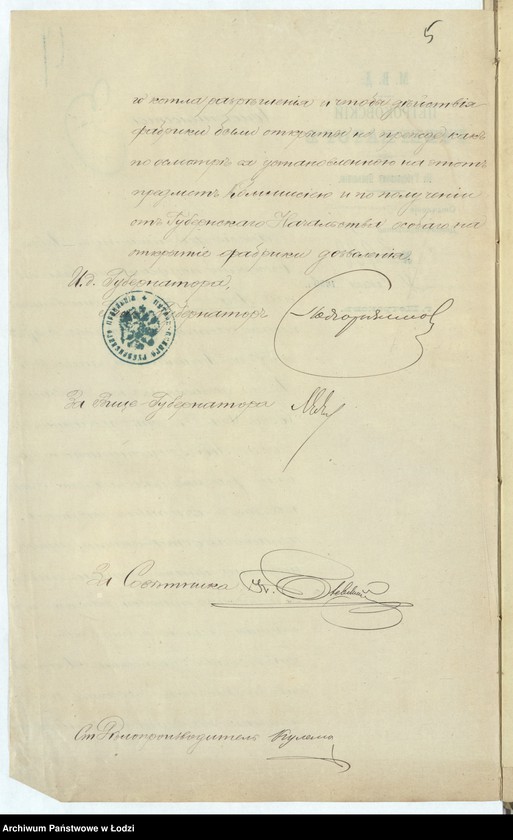 5
го котла разрѣшенія и чтобы дѣйствія
фабрики были открыты не прежде какъ
по осмотрѣ ея установленною на этотъ
предметъ Коммисіею и по полученіи
отъ Губернскаго Начальства особаго на
открытіе фабрики дозволенія.
И. д. Губернатора,
Губернаторъ
За Вице-Губернатора
За Совѣтника
Ст. Дѣлопроизводитель Кулеша
Archiwum Państwowe w Łodzi